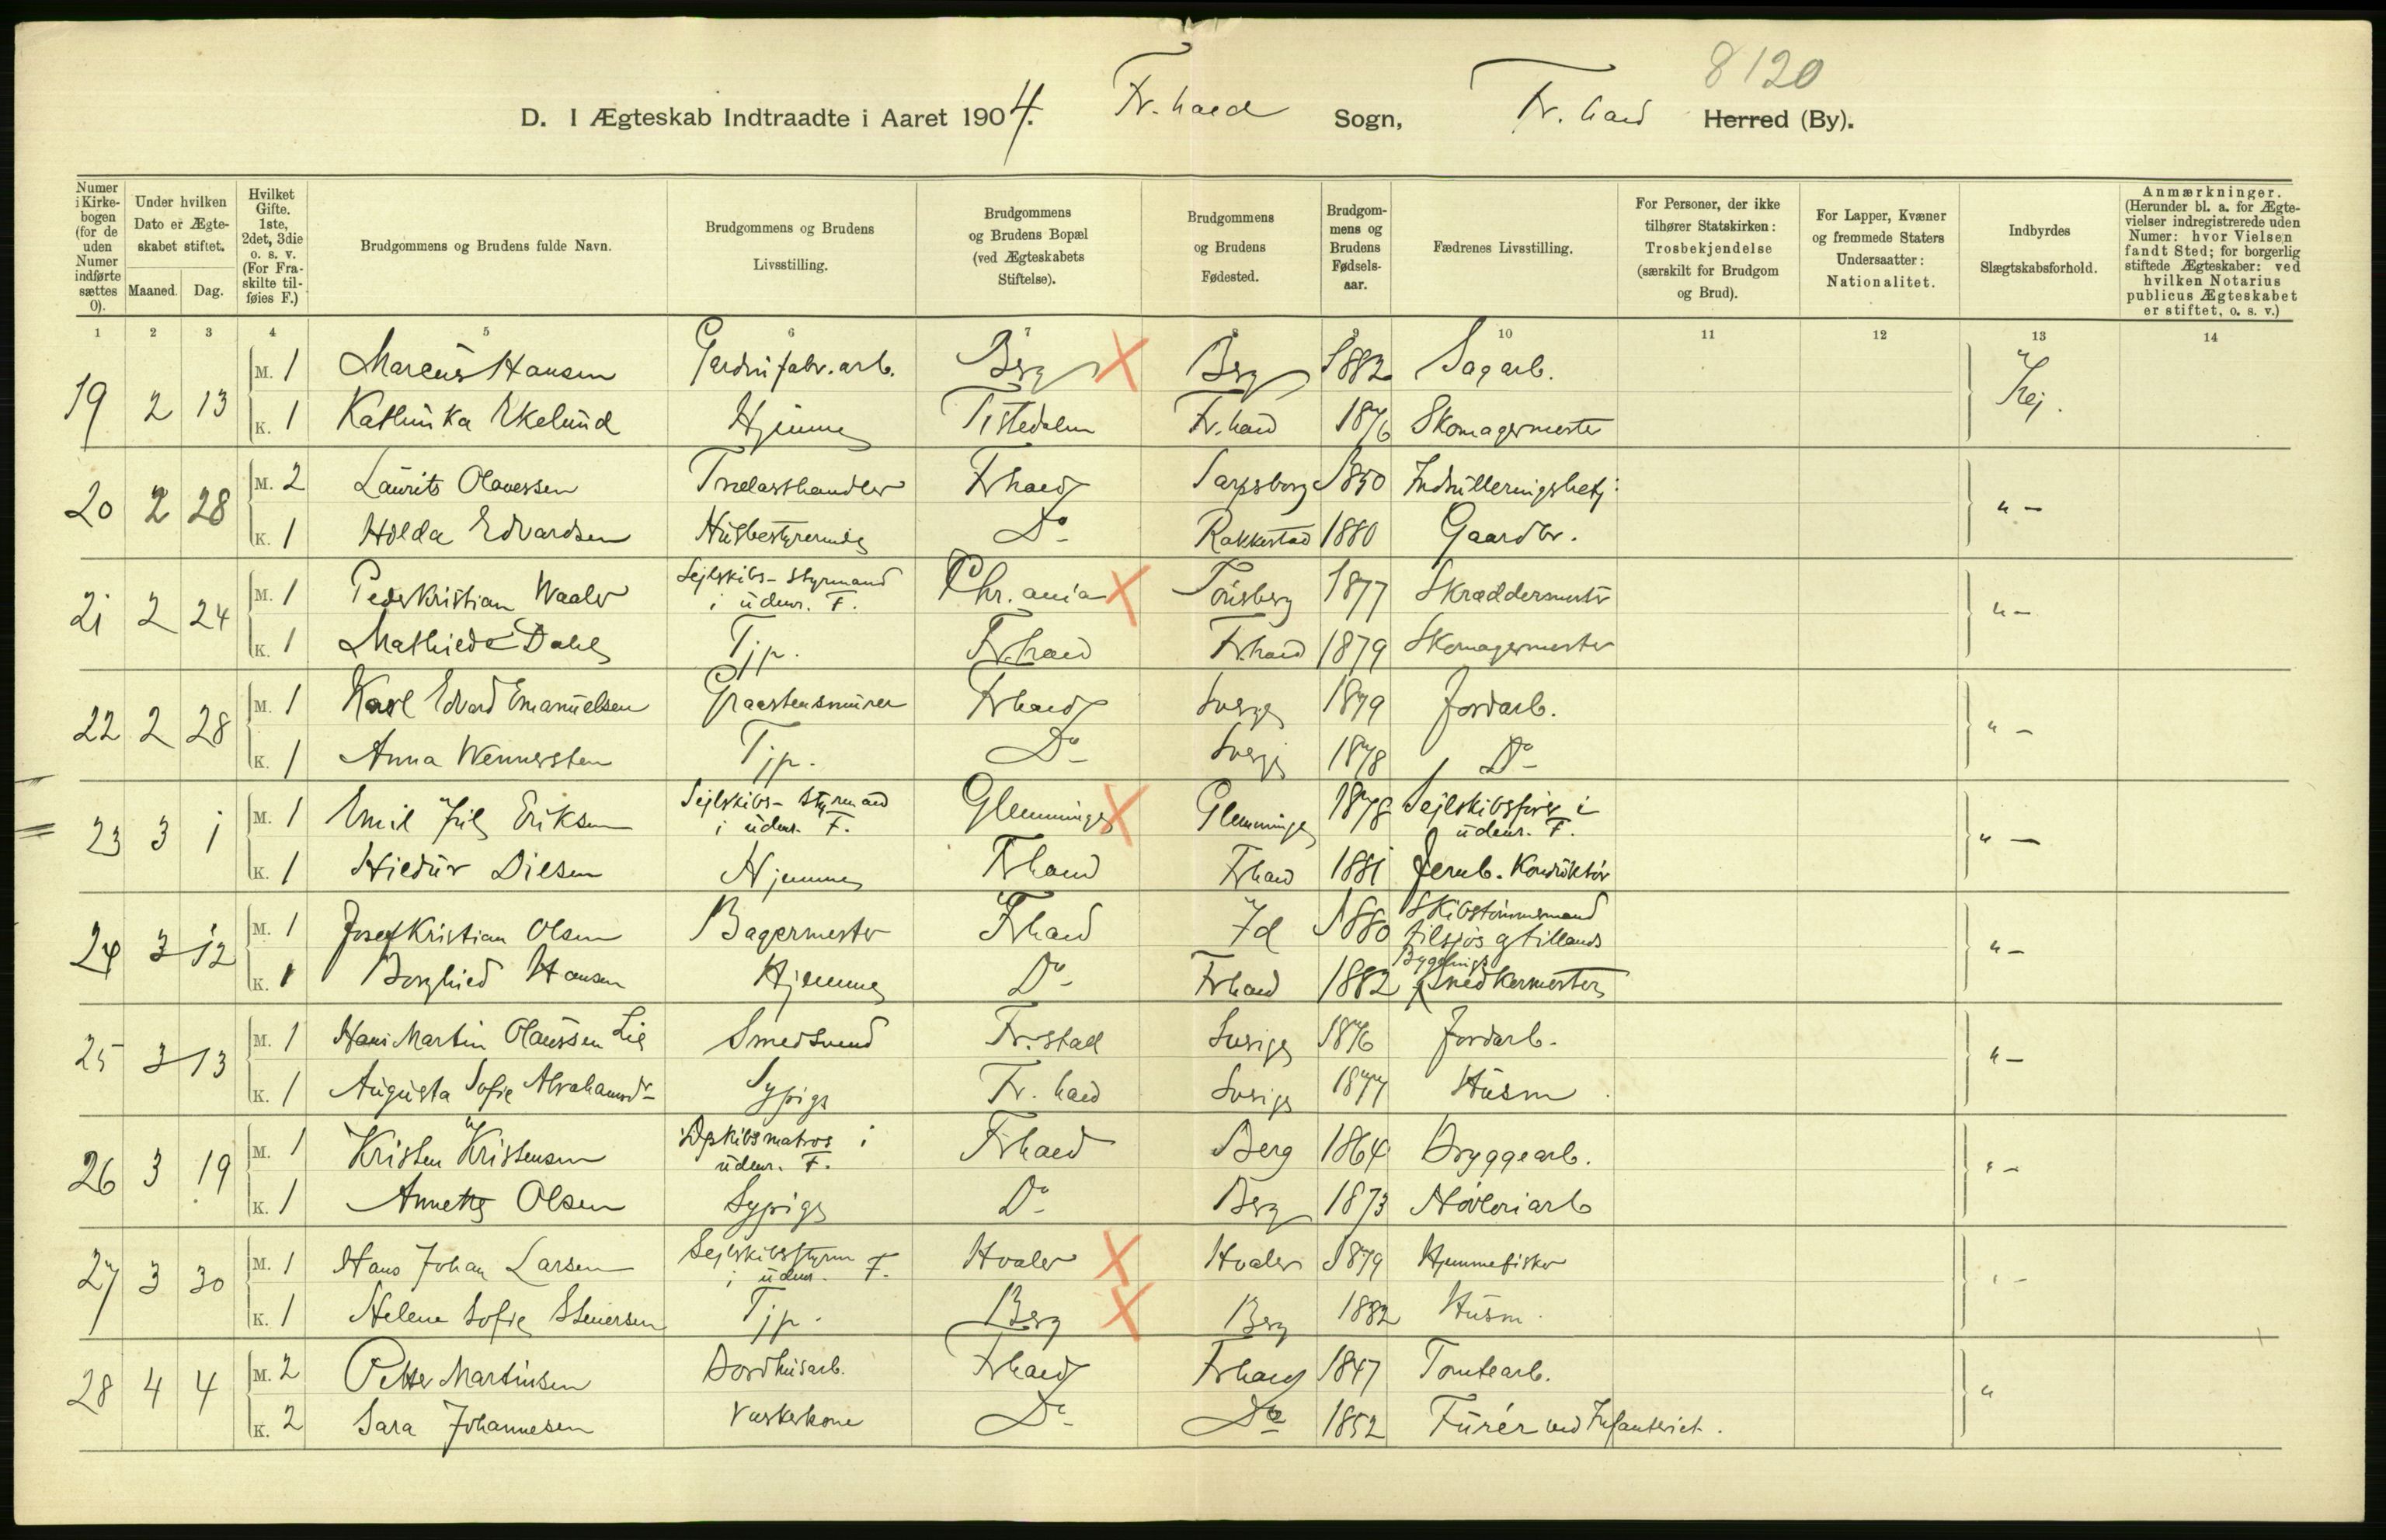 8120
D. I Ægteskab Indtraadte i Aaret 1904. Fr.hald Sogn, Fr. hald Herred (By).
Numer i Kirkebogen (for de uden Numer indførte sættes 0).
Under hvilken Dato er Ægteskabet stiftet. Maaned. Dag.
Hvilket Gifte. 1ste, 2det, 3die o. s. v. (For Fraskilte tilføies F.)
Brudgommens og Brudens fulde Navn.
Brudgommens og Brudens Livsstilling.
Brudgommens og Brudens Bopæl (ved Ægteskabets Stiftelse).
Brudgommens og Brudens Fødested.
Brudgommens og Brudens Fødselsaar.
Fædrenes Livsstilling.
For Personer, der ikke tilhører Statskirken: Trosbekjendelse (særskilt for Brudgom og Brud).
For Lapper, Kvæner og fremmede Staters Undersaatter: Nationalitet.
Indbyrdes Slægtskabsforhold.
Anmærkninger. (Herunder bl. a. for Ægtevielser indregistrerede uden Numer: hvor Vielsen fandt Sted; for borgerlig stiftede Ægteskaber: ved hvilken Notarius publicus Ægteskabet er stiftet, o. s. v.)
1 2 3 4 5 6 7 8 9 10 11 12 13 14
19 2 13 M. 1 Marcus Hansen Gardinfabr.arb. Berg Berg 1882 Sagarb. Nej.
K. 1 Kathinka Ekelund Hjemme Tistedalen Fr.hald 1876 Skomagermester
20 2 28 M. 2 Laurits Olavessen Trælasthandler Frhald Sarpsborg 1850 Indrulleringsbetj. " -
K. 1 Holda Edvardsen Husbestyrerinde Do Rakkestad 1880 Gaardbr.
21 2 24 M. 1 Peder Kristian Waaler Sejlskibs-Styrmand i udenr. F. Chr.ania Tønsberg 1877 Skræddermester " -
K. 1 Mathilde Dahl Tjp. Fr.hald Fr.hald 1879 Skomagermester
22 2 28 M. 1 Karl Edvard Emanuelsen Graastensmurer Frhald Sverge 1879 Jordarb. " -
K. 1 Anna Wennersten Tjp. Do Sverge 1878 Do
23 3 1 M. 1 Emil Juel Eriksen Sejlskibs-Styrmand i udenr. F. Glemminge Glemminge 1878 Sejlskibsfører i udenr. F. " -
K. 1 Hildur Dilsen Hjemme Frhald Frhald 1881 Jernb. Konduktør
24 3 12 M. 1 Josef Kristian Olsen Bagermester Frhald Id 1880 Skibstømmermand tilsjøs og tillands " -
K. 1 Borghild Hansen Hjemme Do Frhald 1882 Bygnings Snedkermester
25 3 13 M. 1 Hans Martin Olaussen Lie Smedsvend Fr.stad Sverige 1876 Jordarb. " -
K. 1 Augusta Sofie Abrahamsdr Sypige Fr. hald Sverige 1877 Husm
26 3 19 M. 1 Kristen Kristensen Dpskibsmatros i udenr. F. Frhald Berg 1864 Bryggearb. " -
K. 1 Annette Olsen Sypige Do Berg 1873 Høvleriarb
27 3 30 M. 1 Hans Johan Larsen Sejlskibsstyrm i udenr. F. Hvaler Hvaler 1879 Hjemmefisker " -
K. 1 Helene Sofie Steversen Tjp. Berg Berg 1882 Husm.
28 4 4 M. 2 Petter Martinsen Bordhusarb. Frhald Frhald 1847 Tomtearb. "
K. 2 Sara Johannesen Vaskekone Do Do 1852 Furér ved Infanteriet.